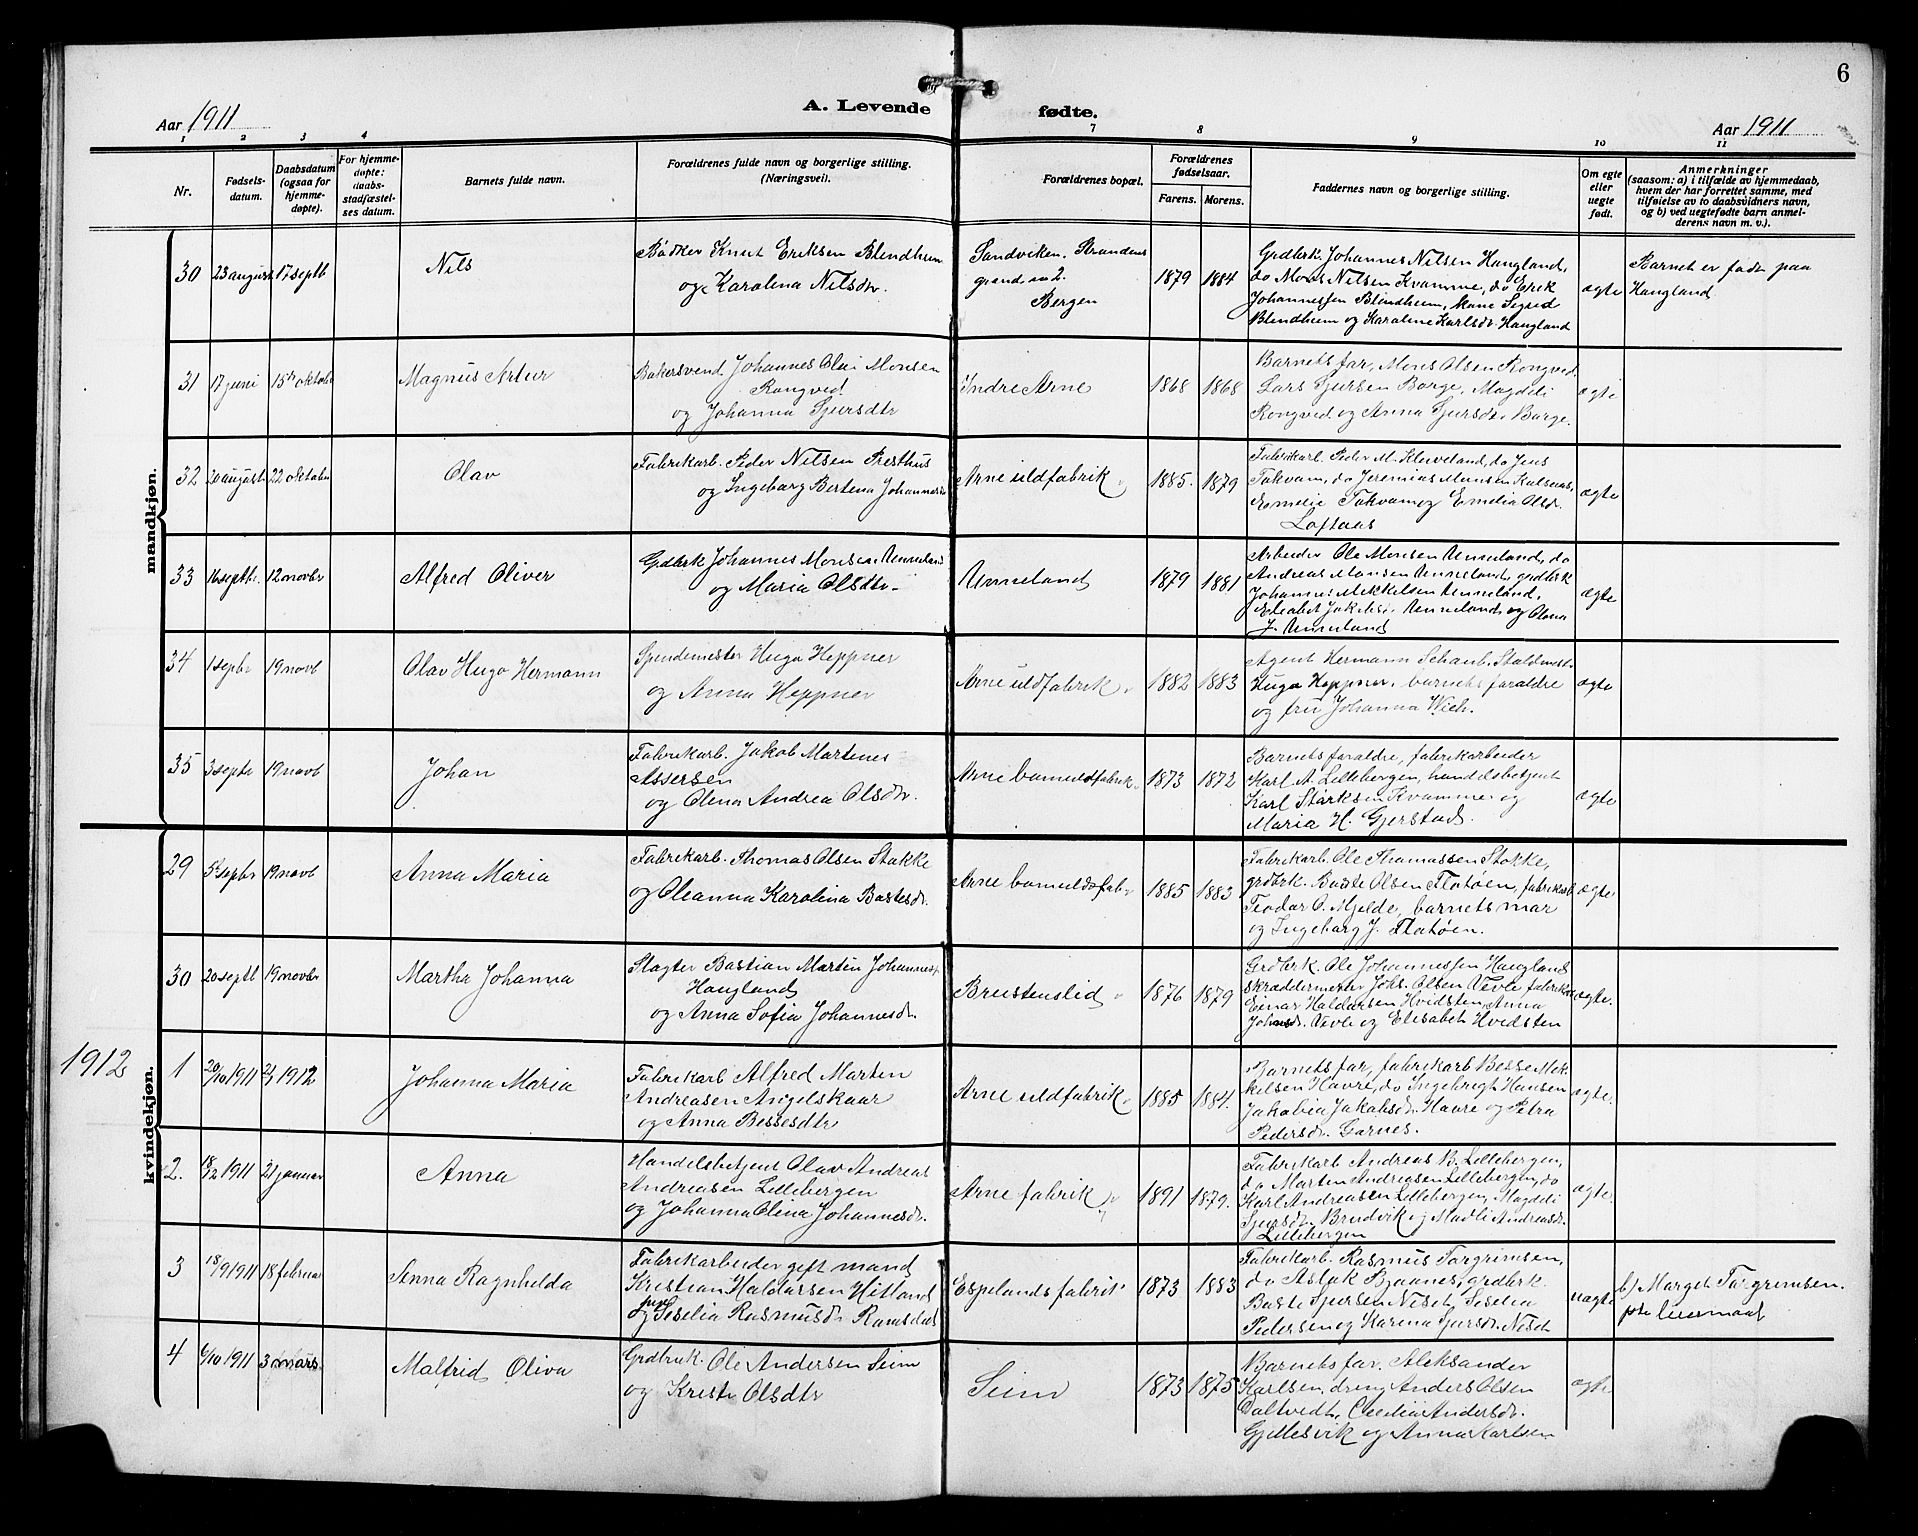 6
A. Levende fødte.
Aar 1911
Aar 1911
1 2 3 4 7 8 9 10 11
Nr.
Fødsels-
datum.
Daabsdatum
(ogsaa for
hjemme-
døpte).
For hjemme-
døpte:
daabs-
stadfæstel-
ses datum.
Barnets fulde navn.
Forældrenes fulde navn og borgerlige stilling.
(Næringsvei).
Forældrenes bopæl.
Forældrenes
fødselsaar.
Farens. Morens.
Faddernes navn og borgerlige stilling.
Om egte
eller
uegte
født.
Anmerkninger
(saasom: a) i tilfælde av hjemmedaab,
hvem der har forrettet samme, med
tilføielse av to daabsvidners navn,
og b) ved uegtefødte barn anmel-
derens navn m. v.).
mandkjøn.
30 23 august 17 septb Nils
Bødker Knut Eriksen Blindheim
og Karolina Nilsdtr.
Sandviken.
Bergen
1879 1884
Grdbrk. Johannes Nilsen Haugland,
do Mons Nilsen Kvamme, do Erik
Johannessen Blindheim, kone Sigrid
Blindheim og Karoline Karlsdr. Haugland
ægte
Barnet er født paa
Haugland
31 17 juni 15de oktobr Magnus Artur
Bakersvend Johannes Olai Monsen
Rongved
og Johanna Sjursdtr
Indre Arne
1868 1868
Barnets far, Mons Olsen Rongved
Lars Sjursen Borge, Magdeli
Rongved og Anna Sjursdr. Borge.
ægte
32 20 august 22 oktobr Olav
Fabrikarb. Peder Nilsen Presthus
og Ingeborg Bertena Johannesdr
Arne uldfabrik
1885. 1879
Fabrikarb. Peder M. Kleiveland, do Jens
Takvam, do Jeremias Monsen Kalsaas,
Emelie Takvam og Emelia Olsdr.
Loftaas
ægte
33 16 septbr. 12 novbr Alfred Oliver
Grdbrk Johannes Monsen Unneland
og Maria Olsdtr.
Unneland
1879 1881
Arbeider Ole Monsen Unneland, do
Andreas Monsen Unneland, grdbrk
Johannes Mikkelsen Unneland,
Elisabet Jakobsdr. Unneland og Olena
J. Unneland
ægte
34 1 septbr 19 novb Olav Hugo Hermann
Spindemester Hugo Heppner
og Anna Heppner
Arne uldfabrik
1882 1883
Agent Hermann Schaub,
Hugo Heppner, barnets foraldre
og fru Johanna Wich.
ægte
35 3 septb 19 novb Johan
Fabrikarb. Jakob Martenes
Assersen
og Olena Andrea Olsdtr.
Arne bomuldsfabrik
1873 1872
Barnets foraldre, fabrikarbeider
Karl A. Lillebergen, handelsbetjent
Karl Størksen Kvamme og
Maria H. Gjerstad.
ægte
kvindekjøn.
29 5 septbr 19 novb Anna Maria
Fabrikarb. Thomas Olsen Stokke
og Oleanna Karolina Bastesdr.
Arne bomuldsfab.
1885 1883
Fabrikarb. Ole Thomassen Stokke,
grdbrk. Baste Olsen Flatøen, fabrikarb
Teodor O. Mjelde, barnets mor
og Ingeborg J. Flatøen.
ægte
30 20 septb 19 novbr Martha Johanna
Slagter Bastian Martin Johannes.
Haugland
og Anna Sofia Johannesdr.
Breistenslid
1876 1879
Grdbrk Ole Johannessen Haugland
skræddermester Johs. Olsen Vevle fabrikarb
Einar Haldorsen Hvidsten, Anna
Johnsdr. Vevle og Elisabeth Hvidsten
ægte.
1912
1 20/10 1911 1912 Johanna Maria
Fabrikarb Alfred Marten
Andreasen Angelskaar
og Anna Bessesdtr
Arne uldfabrik
1885 1884.
Barnets far, fabrikarb Besse Mek-
kelsen Havre, do Ingebrigt Hansen
Jakobia Jakobsdr. Havre og Petra
Pedersdr. Garnes.
ægte.
2. 18/12 1911 21 januar Anna
Handelsbetjent Olav Andreas
Andreasen Lillebergen
og Johanna Olina Johannesdr.
Arne fabrik
1891 1879.
Fabrikarb Andreas B. Lillebergen,
do Marten Andreasen Lillebergen, do
Karl Andreasen Lillebergen, Magdeli
Sjursdr. Brudvik og Madli Andreasdr.
Lillebergen
ægte
3 18/9 1911 18 februar Senna Ragnhilda
Fabrikarbeider gift mand
Kristian Haldorsen Hitland
og pige Seselia Rasmusdr Ramsdal
Espelands fabrik
1873 1883
Fabrikarb. Rasmus Torgrimsen,
do Aslak Bjaanes, grdbrk.
Baste Sjursen Niset, Seselia
Pedersen og Karina Sjursdr. Niset
uægte
b) Marget Torgrimsen.
4 6/10 1911 3 mars Malfrid Oliva
Grdbruk. Ole Andersen Seim
og Kristi Olsdtr
Seim
1873 1875
Barnets far, Aleksander
Karlsen, dreng Anders Olsen
Daltvedt, Cecilia Andersdr.
Gjellesvik og Anna Karlsen
ægte